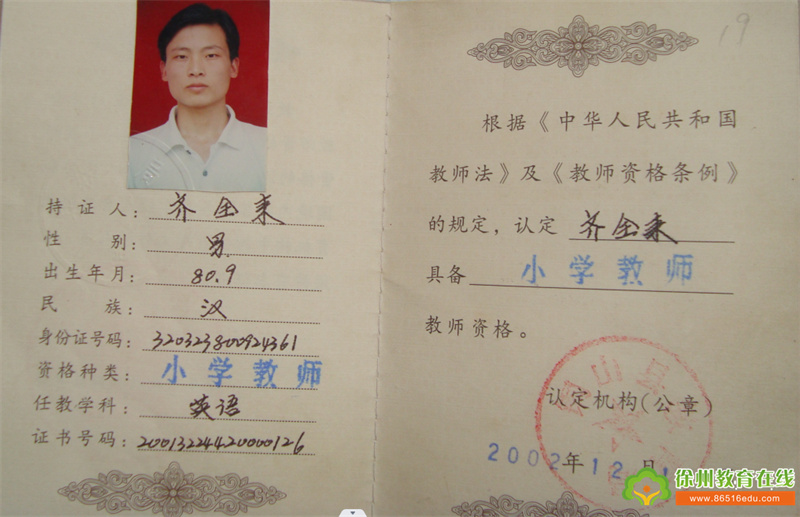 持证人：齐全来
性别：男
出生年月：80.9
民族：汉
身份证号码：320323800924361
资格种类：小学教师
任教学科：英语
证书号码：20013224420000126
19
根据《中华人民共和国
教师法》及《教师资格条例》
的规定，认定 齐全来
具备 小学教师
教师资格。
山县
认定机构（公章）
2002年12月
徐州教育在线
www.86516edu.com